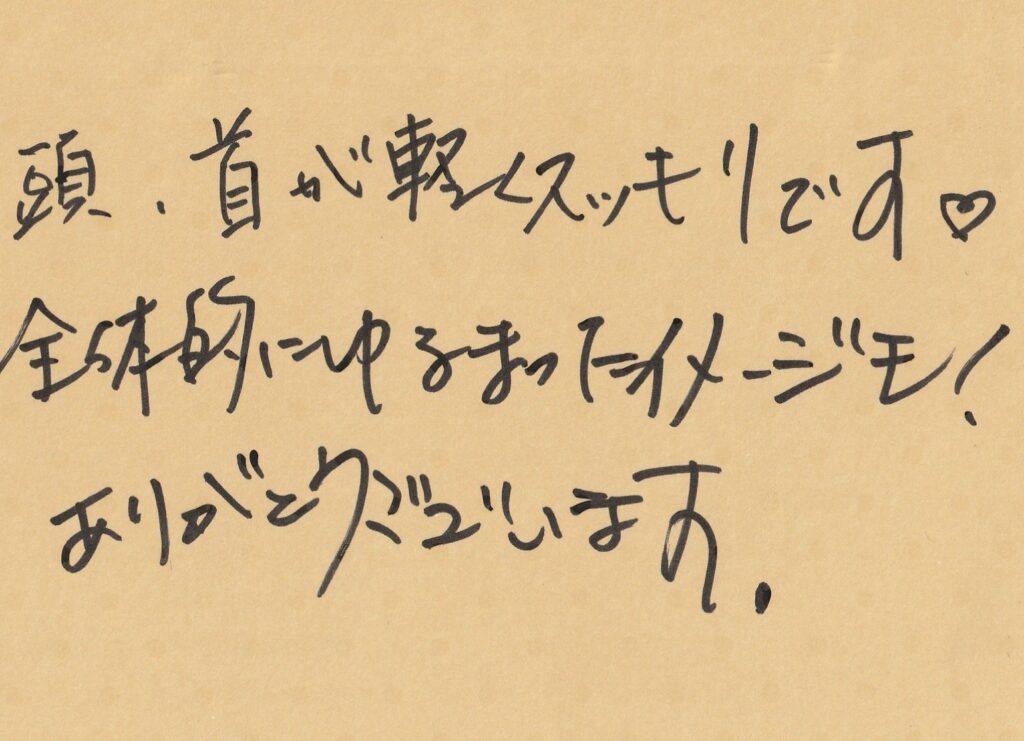 頭、首が軽くスッキリです♡
全体的にゆるまったイメージモ!
ありがとうございます.